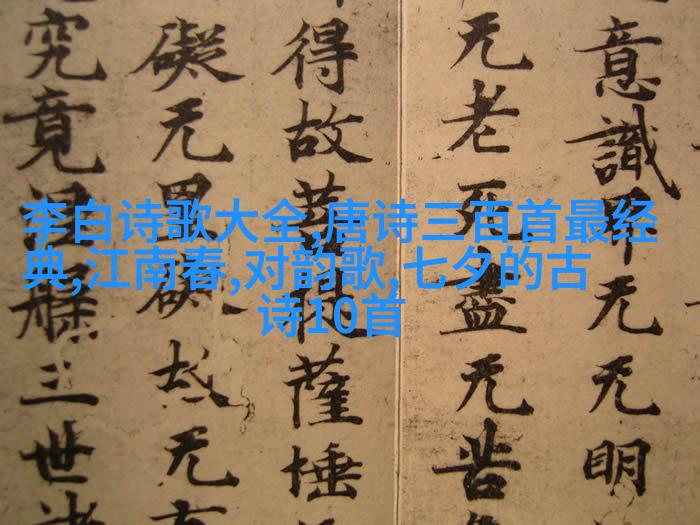 李白诗歌大全,唐诗三百首最经
典,江南春,对韵歌,七夕的古
诗10首
意識界无无明
无老死盡无苦
得故菩提薩埵
礙无罣礙故无有
究竟涅槃三世諸